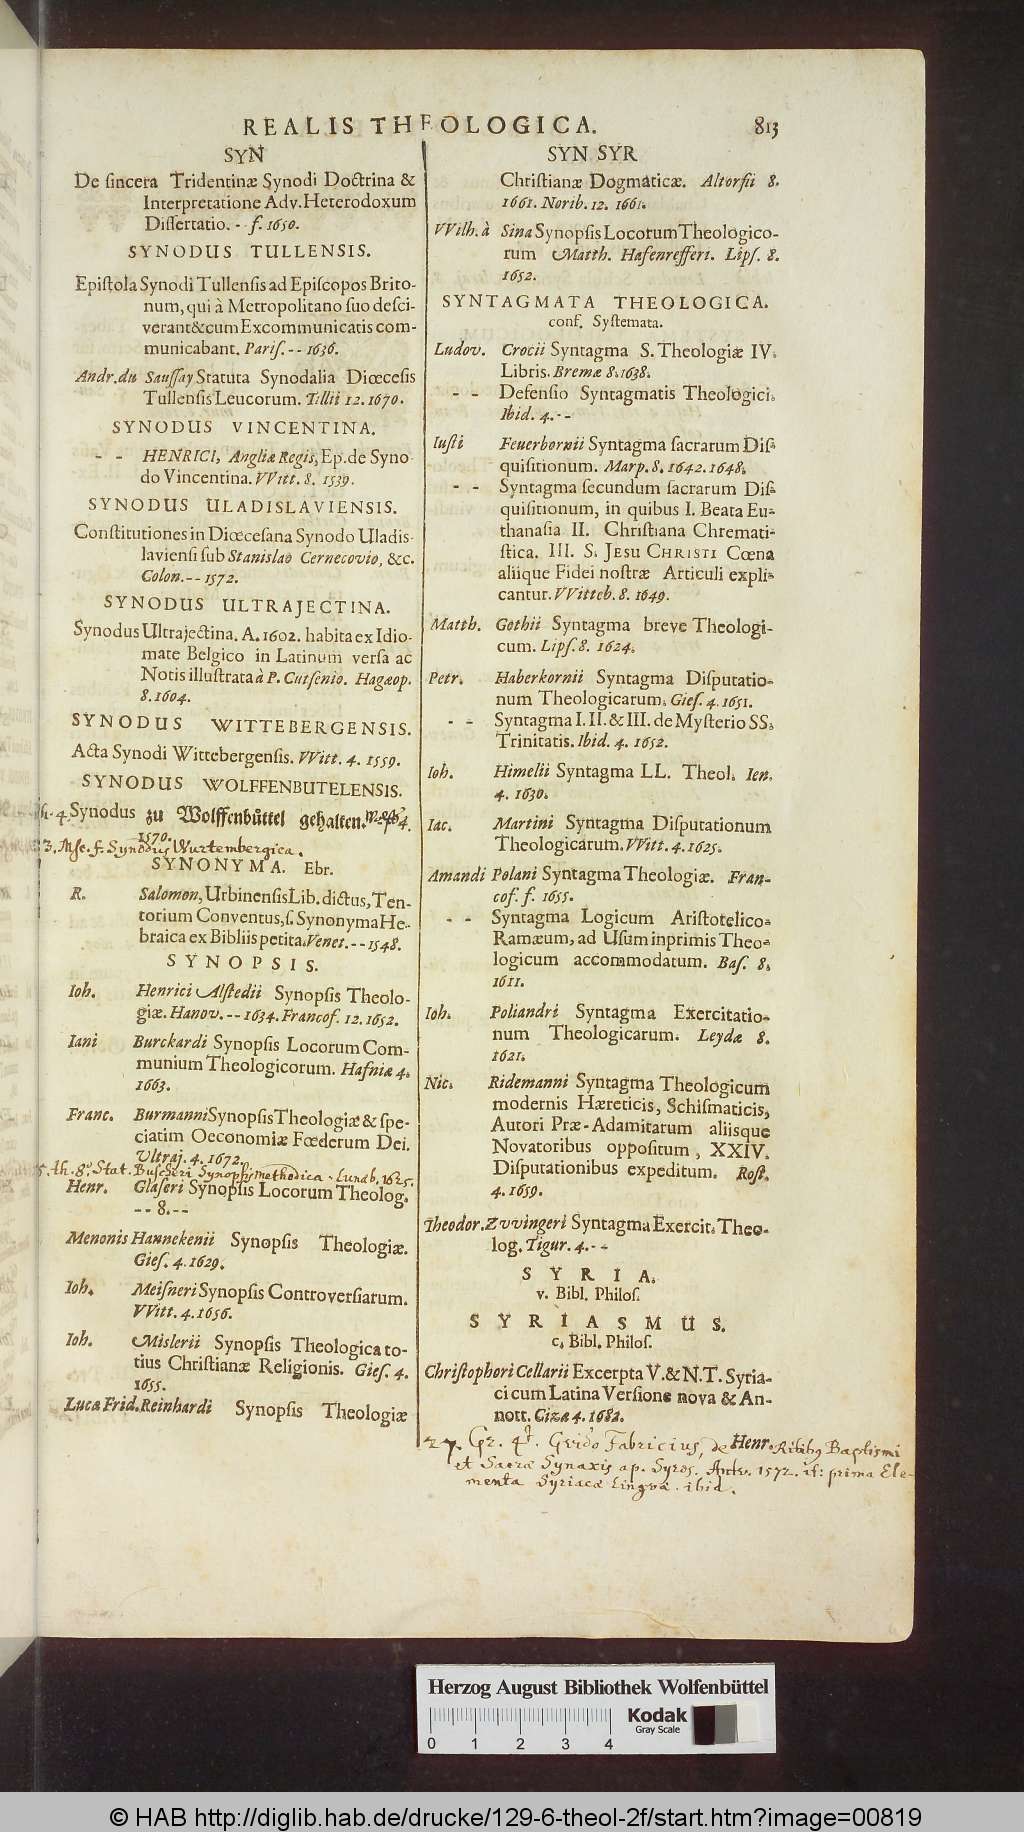 REALIS THEOLOGICA.
813
SYN
De sincera Tridentinæ Synodi Doctrina &
Interpretatione Adv. Heterodoxum
Dissertatio. - f. 1650.
SYNODUS TULLENSIS.
Epistola Synodi Tullensis ad Episcopos Brito-
num, qui à Metropolitano suo desci-
verant & cum Excommunicatis com-
municabant. Paris. -- 1636.
Andr. du Saussay Statuta Synodalia Diœcesis
Tullensis Leucorum. Tillii 12. 1670.
SYNODUS VINCENTINA.
- - HENRICI, Angliæ Regis, Ep. de Syno-
do Vincentina. VVitt. 8. 1539.
SYNODUS ULADISLAVIENSIS.
Constitutiones in Diœcesana Synodo Uladis-
laviensi sub Stanislao Cernecovio, &c.
Colon. -- 1572.
SYNODUS ULTRAJECTINA.
Synodus Ultrajectina. A. 1602. habita ex Idio-
mate Belgico in Latinum versa ac
Notis illustrata à P. Cutsenio. Hagæop.
8. 1604.
SYNODUS WITTEBERGENSIS.
Acta Synodi Wittebergensis. VVitt. 4. 1559.
SYNODUS WOLFFENBUTELENSIS.
Synodus zu Wolffenbüttel gehalten. 4.
1570.
3. Mse. f. Synodus Wurtembergica.
SYNONYMA. Ebr.
R. Salomon, Urbinensis Lib. dictus, Ten-
torium Conventus, s. Synonyma He-
braica ex Bibliis petita. Venet. -- 1548.
SYNOPSIS.
Ioh. Henrici Alstedii Synopsis Theolo-
giæ. Hanov. -- 1634. Francof. 12. 1652.
Iani Burckardi Synopsis Locorum Com-
munium Theologicorum. Hafniæ 4.
1663.
Franc. Burmanni Synopsis Theologiæ & spe-
ciatim Oeconomiæ Fœderum Dei.
Ultraj. 4. 1672.
5. th. 8º. Stat. Buscheri Synopsis methodica. Lunæb. 1625.
Henr. Glaseri Synopsis Locorum Theolog.
-- 8. --
Menonis Hannekenii Synopsis Theologiæ.
Gies. 4. 1629.
Ioh. Meisneri Synopsis Controversiarum.
VVitt. 4. 1656.
Ioh. Mislerii Synopsis Theologica to-
tius Christianæ Religionis. Gies. 4.
1655.
Luca Frid. Reinhardi Synopsis Theologiæ
SYN SYR
Christianæ Dogmaticæ. Altorfii 8.
1661. Norib. 12. 1661.
VVilh. à Sina Synopsis Locorum Theologico-
rum Matth. Hafenrefferi. Lips. 8.
1652.
SYNTAGMATA THEOLOGICA.
conf. Systemata.
Ludov. Crocii Syntagma S. Theologiæ IV.
Libris. Bremæ 8. 1638.
- - Defensio Syntagmatis Theologici.
Ibid. 4. --
Iusti Feuerbornii Syntagma sacrarum Dis-
quisitionum. Marp. 8. 1642. 1648.
- - Syntagma secundum sacrarum Dis-
quisitionum, in quibus I. Beata Eu-
thanasia II. Christiana Chremati-
stica. III. S. JESU CHRISTI Cœna
aliique Fidei nostræ Articuli expli-
cantur. VVitteb. 8. 1649.
Matth. Gothii Syntagma breve Theologi-
cum. Lips. 8. 1624.
Petr. Haberkornii Syntagma Disputatio-
num Theologicarum. Gies. 4. 1651.
- - Syntagma I. II. & III. de Mysterio SS.
Trinitatis. Ibid. 4. 1652.
Ioh. Himelii Syntagma LL. Theol. Ien.
4. 1630.
Iac. Martini Syntagma Disputationum
Theologicarum. VVitt. 4. 1625.
Amandi Polani Syntagma Theologiæ. Fran-
cof. f. 1655.
- - Syntagma Logicum Aristotelico-
Ramæum, ad Usum inprimis Theo-
logicum accommodatum. Bas. 8.
1611.
Ioh. Poliandri Syntagma Exercitatio-
num Theologicarum. Leydæ 8.
1621.
Nic. Ridemanni Syntagma Theologicum
modernis Hæreticis, Schismaticis,
Autori Præ-Adamitarum aliisque
Novatoribus oppositum, XXIV.
Disputationibus expeditum. Rost.
4. 1659.
Theodor. Zvvingeri Syntagma Exercit. Theo-
log. Tigur. 4. --
SYRIA.
v. Bibl. Philos.
SYRIASMUS.
c. Bibl. Philos.
Christophori Cellarii Excerpta V. & N. T. Syria-
ci cum Latina Versione nova & An-
nott. Ciza 4. 1682.
Gr. 4º. Guido Fabricius, de Henr. Ritibus Baptismi
et Sacræ Synaxis ap. Syros. Antv. 1572. it: prima Ele-
menta Syriacæ Linguæ. ibid.
Herzog August Bibliothek Wolfenbüttel
0 1 2 3 4
Kodak
Gray Scale
© HAB http://diglib.hab.de/drucke/129-6-theol-2f/start.htm?image=00819